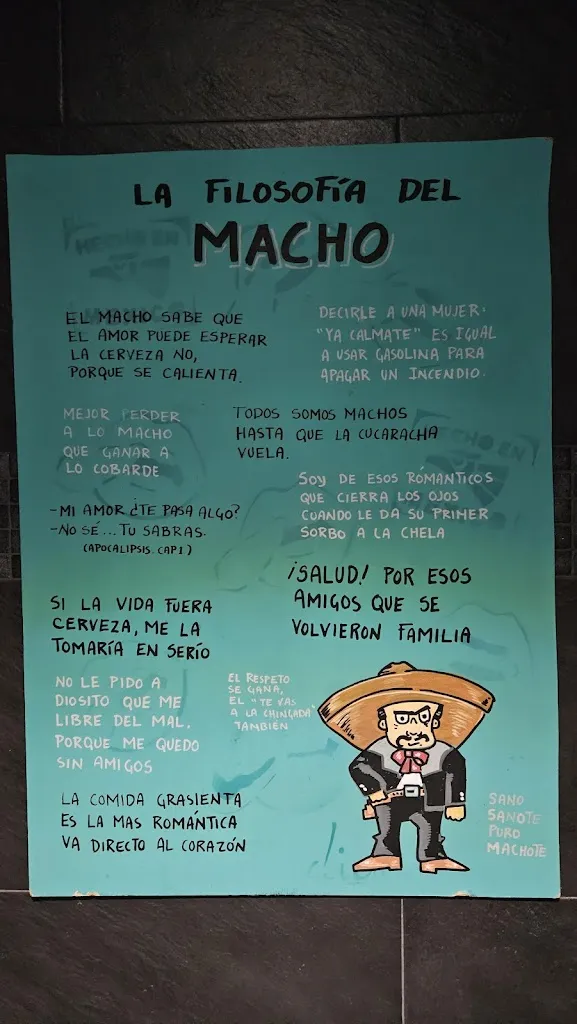 LA FILOSOFÍA DEL
MACHO
EL MACHO SABE QUE
EL AMOR PUEDE ESPERAR
LA CERVEZA NO,
PORQUE SE CALIENTA.
DECIRLE A UNA MUJER:
"YA CALMATE" ES IGUAL
A USAR GASOLINA PARA
APAGAR UN INCENDIO.
MEJOR PERDER
A LO MACHO
QUE GANAR A
LO COBARDE
TODOS SOMOS MACHOS
HASTA QUE LA CUCARACHA
VUELA.
SOY DE ESOS ROMÁNTICOS
QUE CIERRA LOS OJOS
CUANDO LE DA SU PRIMER
SORBO A LA CHELA
-MI AMOR ¿TE PASA ALGO?
-NO SÉ... TU SABRAS.
(APOCALIPSIS. CAP 1)
¡SALUD! POR ESOS
AMIGOS QUE SE
VOLVIERON FAMILIA
SI LA VIDA FUERA
CERVEZA, ME LA
TOMARÍA EN SERÍO
NO LE PIDO A
DIOSITO QUE ME
LIBRE DEL MAL.
PORQUE ME QUEDO
SIN AMIGOS
EL RESPETO
SE GANA,
EL "TE VAS
A LA CHINGADA"
TAMBIÉN
LA COMIDA GRASIENTA
ES LA MAS ROMÁNTICA
VA DIRECTO AL CORAZÓN
SANO
SANOTE
PURO
MACHOTE